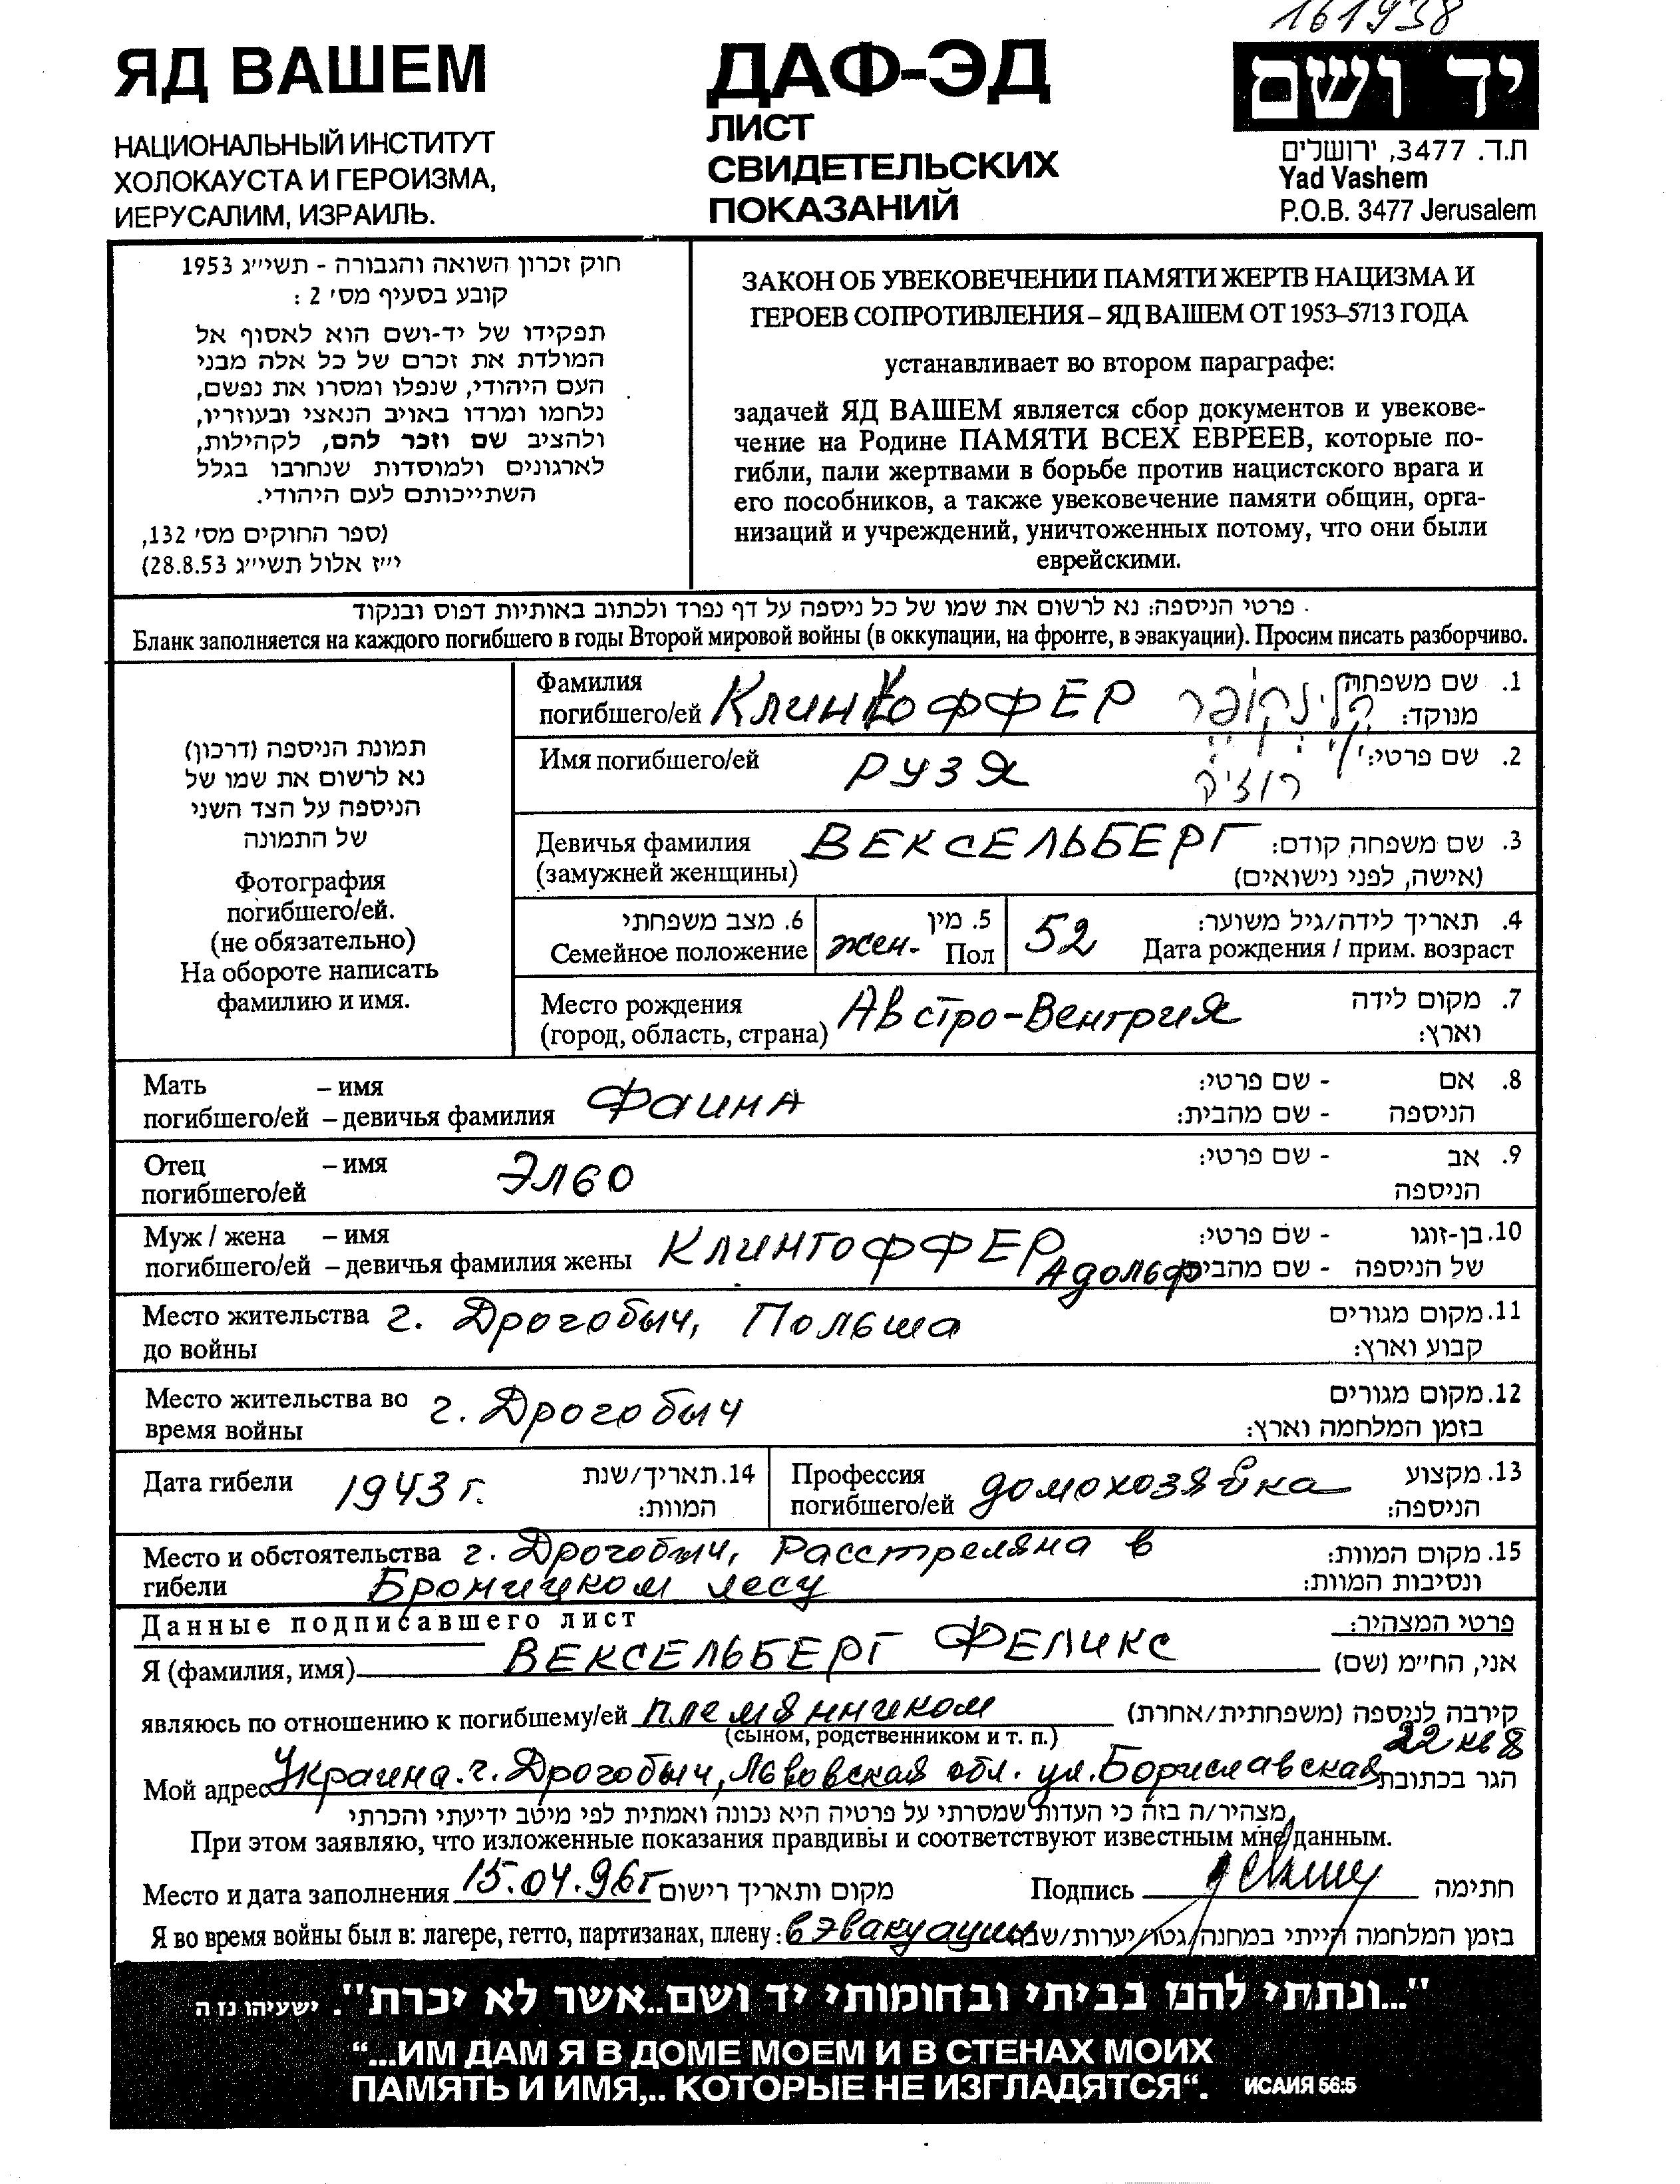 161938
ЯД ВАШЕМ
НАЦИОНАЛЬНЫЙ ИНСТИТУТ
ХОЛОКАУСТА И ГЕРОИЗМА,
ИЕРУСАЛИМ, ИЗРАИЛЬ.
ДАФ-ЭД
ЛИСТ
СВИДЕТЕЛЬСКИХ
ПОКАЗАНИЙ
יד ושם
ת.ד. 3477, ירושלים
Yad Vashem
P.O.B. 3477 Jerusalem
חוק זכרון השואה והגבורה - תשי״ג 1953
קובע בסעיף מס׳ 2 :
תפקידו של יד-ושם הוא לאסוף אל
המולדת את זכרם של כל אלה מבני
העם היהודי, שנפלו ומסרו את נפשם,
נלחמו ומרדו באויב הנאצי ובעוזריו,
ולהציב שם וזכר להם, לקהילות,
לארגונים ולמוסדות שנחרבו בגלל
השתייכותם לעם היהודי.
(ספר החוקים מס׳ 132,
י״ז אלול תשי״ג 28.8.53)
ЗАКОН ОБ УВЕКОВЕЧЕНИИ ПАМЯТИ ЖЕРТВ НАЦИЗМА И
ГЕРОЕВ СОПРОТИВЛЕНИЯ – ЯД ВАШЕМ ОТ 1953–5713 ГОДА
устанавливает во втором параграфе:
задачей ЯД ВАШЕМ является сбор документов и увекове-
чение на Родине ПАМЯТИ ВСЕХ ЕВРЕЕВ, которые по-
гибли, пали жертвами в борьбе против нацистского врага и
его пособников, а также увековечение памяти общин, орга-
низаций и учреждений, уничтоженных потому, что они были
еврейскими.
פרטי הניספה: נא לרשום את שמו של כל ניספה על דף נפרד ולכתוב באותיות דפוס ובנקוד
Бланк заполняется на каждого погибшего в годы Второй мировой войны (в оккупации, на фронте, в эвакуации). Просим писать разборчиво.
תמונת הניספה (דרכון)
נא לרשום את שמו של
הניספה על הצד השני
של התמונה
Фотография
погибшего/ей.
(не обязательно)
На обороте написать
фамилию и имя.
Фамилия 1. שם משפחה
погибшего/ей КЛИНГОФФЕР קלינגופר מנוקד:
Имя погибшего/ей РУЗЯ 2. שם פרטי:
Девичья фамилия ВЕКСЕЛЬБЕРГ 3. שם משפחה קודם:
(замужней женщины) (אישה, לפני נישואים)
6. מצב משפחתי 5. מין 4. תאריך לידה/גיל משוער:
Семейное положение жен. Пол 52 Дата рождения / прим. возраст
Место рождения Австро-Венгрия 7. מקום לידה
(город, область, страна) וארץ:
Мать – имя Фаина - שם פרטי: 8. אם
погибшего/ей – девичья фамилия - שם מהבית: הניספה
Отец – имя Элбо - שם פרטי: 9. אב
погибшего/ей הניספה
Муж / жена – имя КЛИНГОФФЕР Адольф - שם פרטי: 10. בן-זוגו
погибшего/ей – девичья фамилия жены - שם מהבית של הניספה
Место жительства г. Дрогобыч, Польша 11. מקום מגורים
до войны קבוע וארץ:
Место жительства во г. Дрогобыч 12. מקום מגורים
время войны בזמן המלחמה וארץ:
Дата гибели 1943 г. 14. תאריך/שנת המוות:
Профессия 13. מקצוע
погибшего/ей домохозяйка הניספה:
Место и обстоятельства г. Дрогобыч, Расстреляна в 15. מקום המוות:
гибели Броницком лесу ונסיבות המוות:
Данные подписавшего лист פרטי המצהיר:
Я (фамилия, имя) ВЕКСЕЛЬБЕРГ ФЕЛИКС אני, הח״מ (שם)
являюсь по отношению к погибшему/ей племянником קירבה לניספה (משפחתית/אחרת)
(сыном, родственником и т. п.)
22 кв 8
Мой адрес Украина. г. Дрогобыч, Львовская обл. ул. Бориславская הגר בכתובת
מצהיר/ה בזה כי העדות שמסרתי על פרטיה היא נכונה ואמתית לפי מיטב ידיעתי והכרתי
При этом заявляю, что изложенные показания правдивы и соответствуют известным мне данным.
Место и дата заполнения 15.04.96г מקום ותאריך רישום Подпись חתימה
Я во время войны был в: лагере, гетто, партизанах, плену: в эвакуации בזמן המלחמה הייתי במחנה/גטו/יערות/
"...ונתתי להם בביתי ובחומותי יד ושם..אשר לא יכרת". ישעיהו נז ה
“...ИМ ДАМ Я В ДОМЕ МОЕМ И В СТЕНАХ МОИХ
ПАМЯТЬ И ИМЯ,.. КОТОРЫЕ НЕ ИЗГЛАДЯТСЯ“. ИСАИЯ 56:5